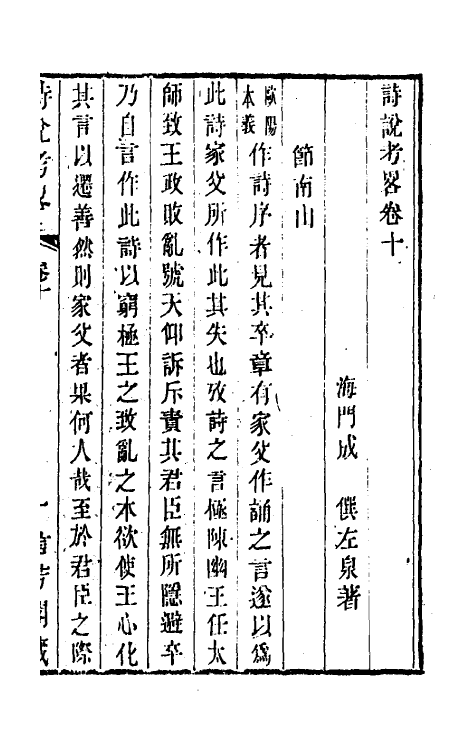 詩說考畧卷十
海門成 僎左泉著
節南山
歐陽本義作詩序者見其卒章有家父作誦之言遂以爲
此詩家父所作此其失也攷詩之言極陳幽王任太
師致王政敗亂號天仰訴斥責其君臣無所隱避卒
乃自言作此詩以窮極王之致亂之本欲使王心化
其言以遷善然則家父者果何人哉至於君臣之際
詩說考畧 卷十 一